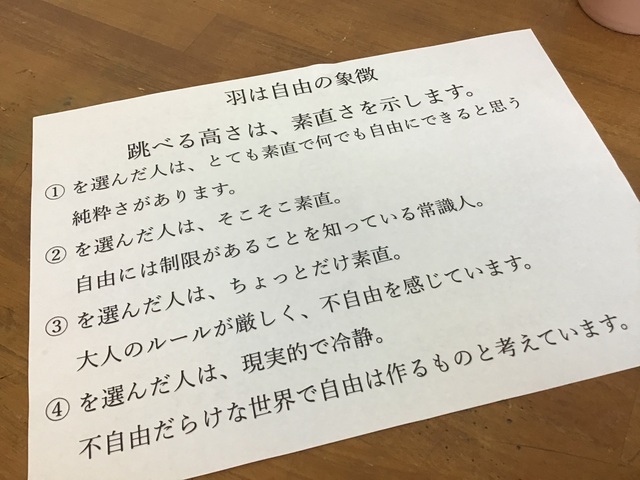 羽は自由の象徴
跳べる高さは、素直さを示します。
① を選んだ人は、とても素直で何でも自由にできると思う
純粋さがあります。
② を選んだ人は、そこそこ素直。
自由には制限があることを知っている常識人。
③ を選んだ人は、ちょっとだけ素直。
大人のルールが厳しく、不自由を感じています。
④ を選んだ人は、現実的で冷静。
不自由だらけな世界で自由は作るものと考えています。